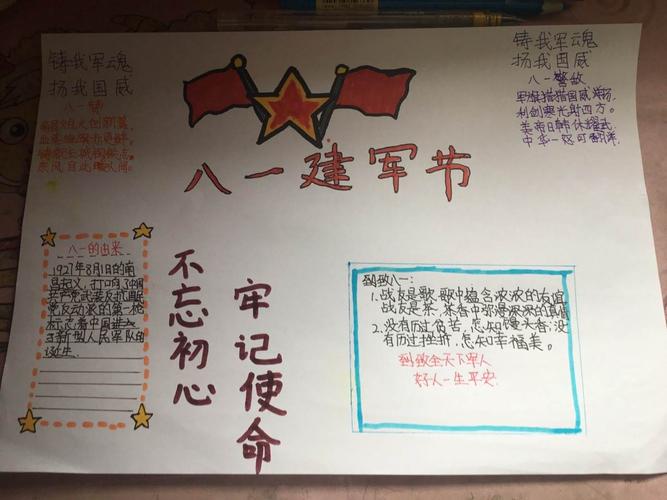 铸我军魂
扬我国威
八一颂
八一建军节
铸我军魂
扬我国威
八一警敌
军旗猎猎国威扬
利剑寒光射四方。
美帝日韩休耀武
中华一怒可翻洋
八一的由来
1927年8月1日的南
昌起义,打响了中国
共产党武装反抗国民
党反动派的第一枪
标志着中国
了新型人民军队的
诞生.
不忘初心
牢记使命
致八一:
1.战友是歌.歌中蕴含浓浓的友谊
战友是茶.茶香中弥漫深深的真情
2.没有历过贫苦,怎知馒头香;没
有历过挫折,怎知幸福美。
致全天下军人
好人一生平安.